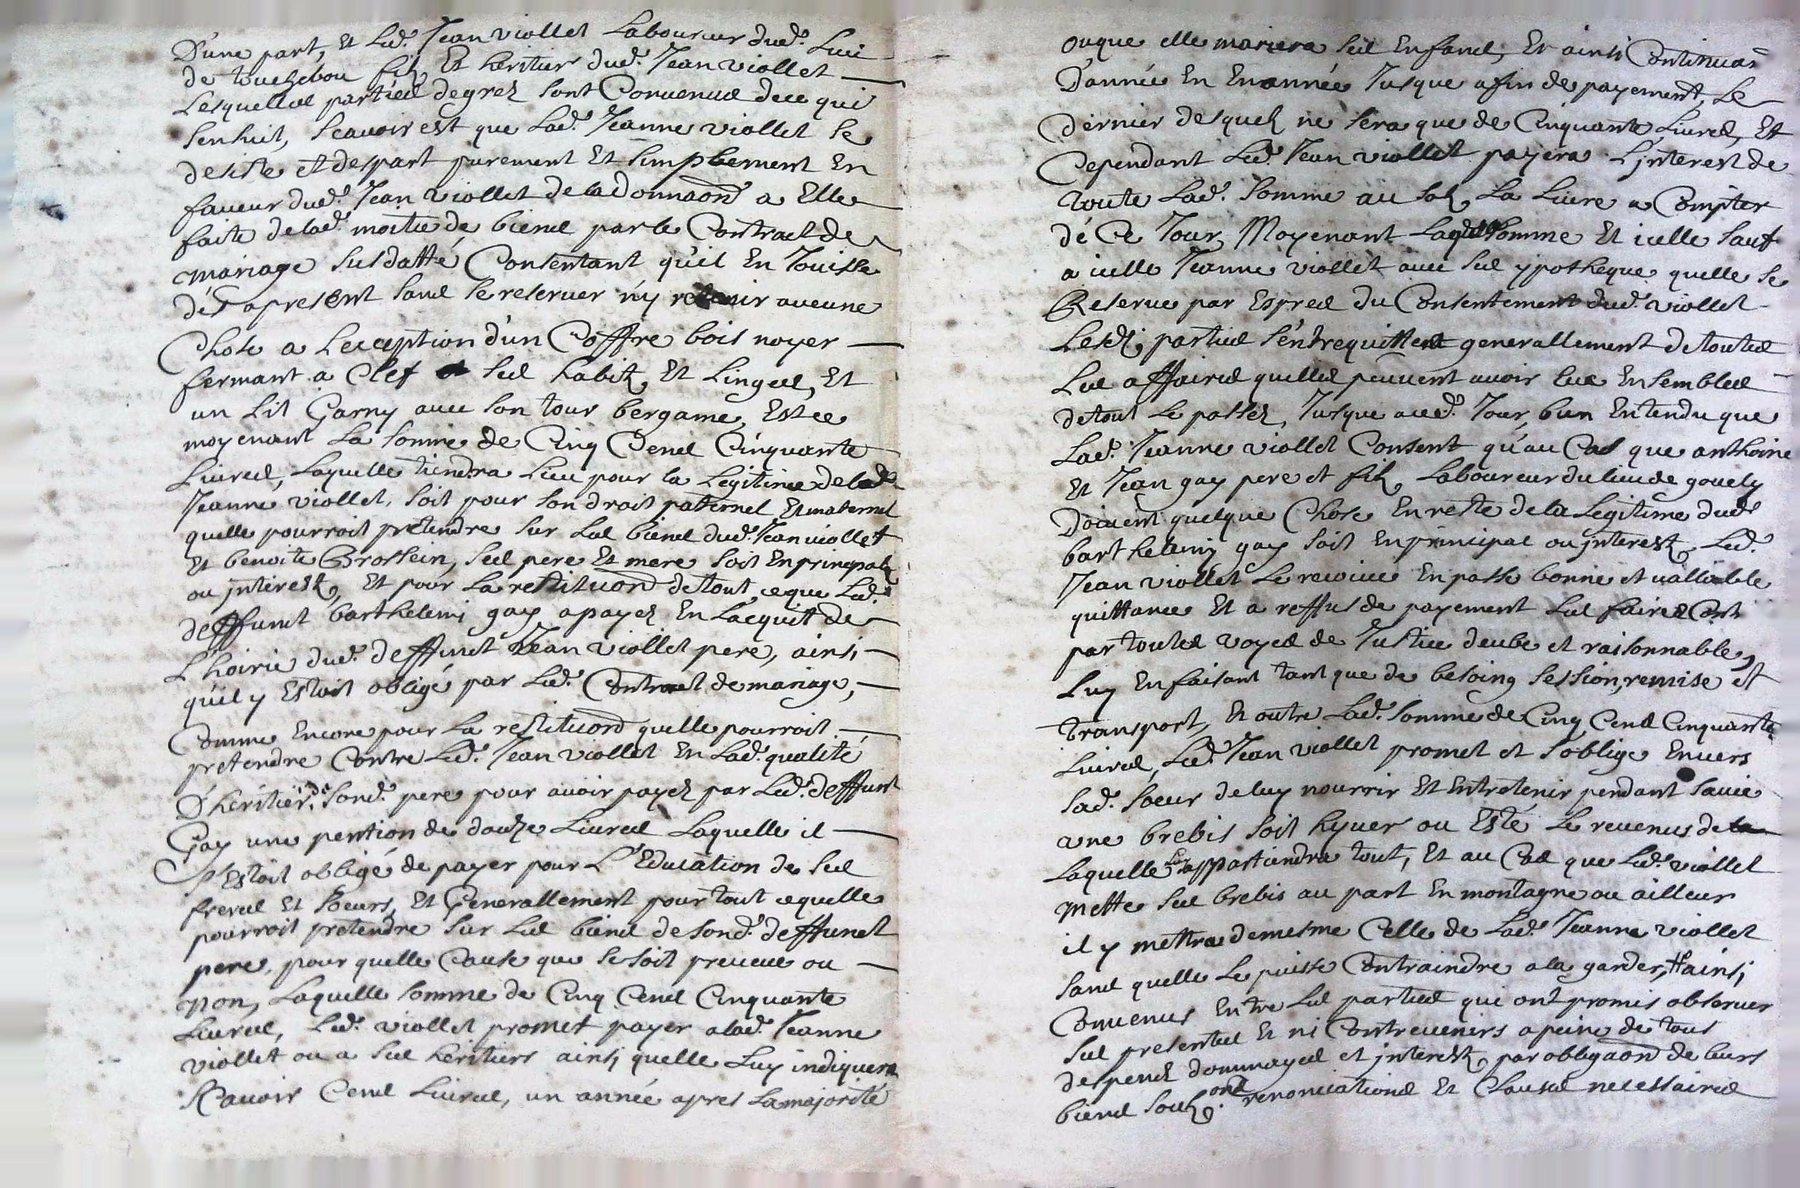 D'une part, Et Led. Jean viollet Laboureur dud. Lieu
de touchebou fils Et heritier dud. Jean viollet
Lesquelles parties degrez sont Convenues de ce qui
senhuit, scauoir est que Lad. Jeanne viollet se
desiste et despart purement Et simplement En
faueur dud. Jean viollet de la donnaon a Elle
faite de lad. moitie de biens par le Contract de
mariage susdatté Consentant qu'il En Jouisse
déz apresent sans se reseruer n'y retenir aucune
Chose a Lexception d'un Coffre bois noyer
fermant a Clef ses habitz Et Linges, Et
un Lit Garny auec son tour bergame, Est ce
moyenant La somme de Cinq Cens Cinquante
Liures, Laquelle tiendra Lieu pour la Legitime de lad.
Jeanne viollet, soit pour son droit paternel Et maternel
quelle pourroit pretendre sur Les biens dud. Jean viollet
Et benoite Brossein, ses pere Et mere soit En principal
ou jnterestz, Et pour La restituon de tout ce que Led.
deffunct barthelemi gay a payez En Lacquit de
L'hoirie dud. deffunct Jean viollet pere, ainsi
qu'il y Estoit obligé par Led. Contract de mariage,
Comme Encore pour La restituon quelle pourroit
pretendre Contre Led. Jean viollet En Lad. qualité
D'heritier de sond. pere pour auoir payez par Led. deffunt
Gay une pention de douze Liures Laquelle il
s'Estoit obligé de payer pour L'Education de ses
freres Et soeurs, Et Generallement pour tout ce quelle
pourroit pretendre sur Les biens de sond. deffunct
pere, pour quelle Cause que se soit preueue ou
non, Laquelle somme de Cinq Cens Cinquante
Liures, Led. viollet promet payer a lad. Jeanne
viollet ou a ses heritiers ainsi quelle Luy indiquera
scauoir Cens Liures, un année apres La majorité
ou que elle mariera ses Enfans, Et ainsi Continuan
D'année En En année Jusque a fin de payement, Le
dernier desquelz ne sera que de Cinquante Liures, Et
Cependant Led. Jean viollet payera L'jnterest de
toute Lad. somme au solz La Liure a Compter
dé Ce Jour, Moyenant Laquelle somme Et icelle sauf
a icelle Jeanne viollet auec ses ypotheque quelle se
Reserue par Expres du Consentement dud. viollet
Lesd. parties s'entrequittent generallement de toutes
Les affaires quelles peuuent auoir Eues Ensembles
de tout Le passez, Jusque a ced. Jour, bien Entendu que
Lad. Jeanne viollet Consent qu'au Cas que anthoine
Et Jean gay pere et filz Laboureur du lieu de gouely
Doiuent quelque Chose En reste de la Legitime dud.
barthelemy gay soit En principal ou jnterestz, Led.
Jean viollet Le recoiue En passe bonne et vallable
quittance Et a reffus de payement Les faire Cont
par toutes voyes de Justice deube et raisonnable,
Luy En faisant tant que de besoing session, remise et
transport, Et outre Lad. somme de Cinq Cens Cinquante
Liures, Led. Jean viollet promet et s'oblige Enuers
sad. soeur de luy nourrir Et Entretenir pendant sa vie
une brebis soit hyuer ou Esté Le reuenus de
Laquelle Luy appartiendra tout, Et au Cas que Led. viollet
mette ses brebis au part En montagne ou ailleur
il y mettra demesme Celle de Lad. Jeanne viollet
sans quelle Le puisse Contraindre a la garder, ainsi
Conuenus Entre Les parties qui ont promis obseruer
Ses presentes Et ni Contreuenirs a peine de tous
despens dommages et jnterestz par obligaon de leurs
biens soubz. ons renonciations Et Clauses necessaires